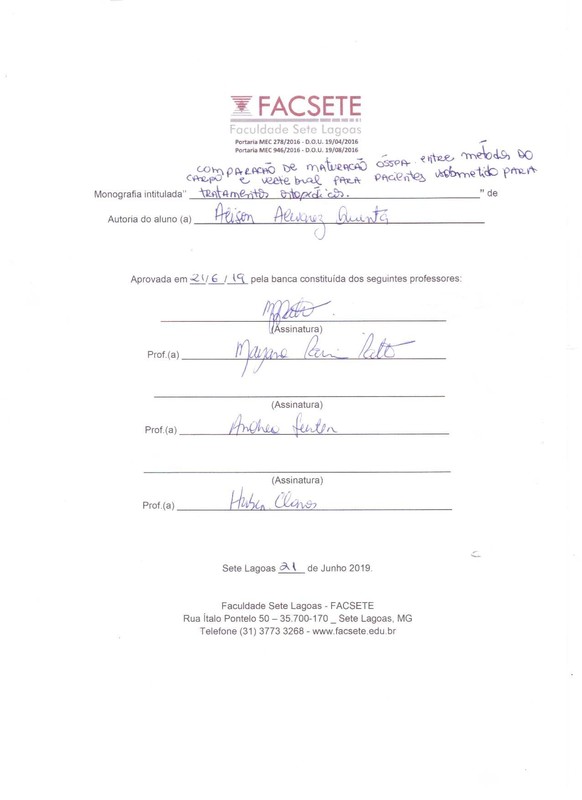 FACSETE
Faculdade Sete Lagoas
Portaria MEC 278/2016 - D.O.U. 19/04/2016
Portaria MEC 946/2016 - D.O.U. 19/08/2016
COMPARAÇÃO DE MATURAÇÃO ÓSSEA entre métodos DO
CARPO E vertebral PARA PACIENTES submetido PARA
Monografia intitulada" tratamentos ortopédicos. " de
Autoria do aluno (a) Alison Alvarez
Aprovada em 21/6/19 pela banca constituída dos seguintes professores:
(Assinatura)
Prof.(a)
(Assinatura)
Prof.(a) Andrea
(Assinatura)
Prof.(a)
Sete Lagoas 21 de Junho 2019.
Faculdade Sete Lagoas - FACSETE
Rua Ítalo Pontelo 50 – 35.700-170 _ Sete Lagoas, MG
Telefone (31) 3773 3268 - www.facsete.edu.br